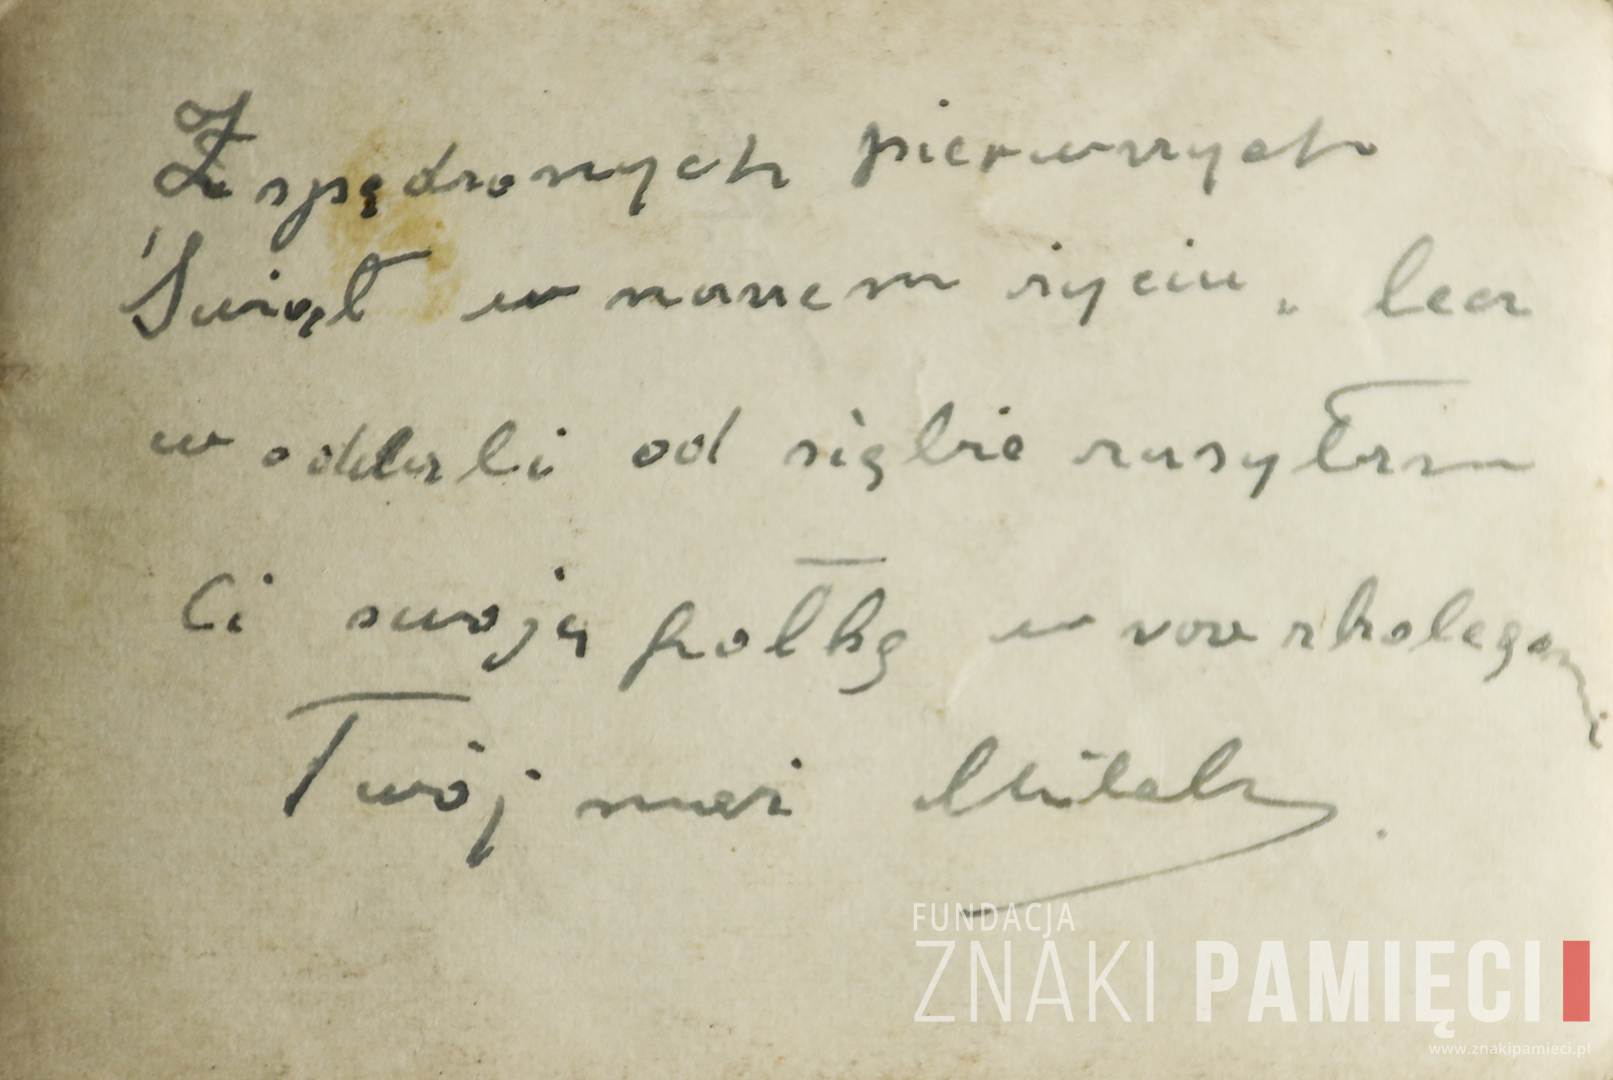 Z spędzonych pierwszych
Świąt w naszem życiu, lecz
w oddali od siębie zasyłam
Ci swoją fotkę w raz z kolegami
Twój mąż Mitek.
FUNDACJA
ZNAKI PAMIĘCI
www.znakipamieci.pl